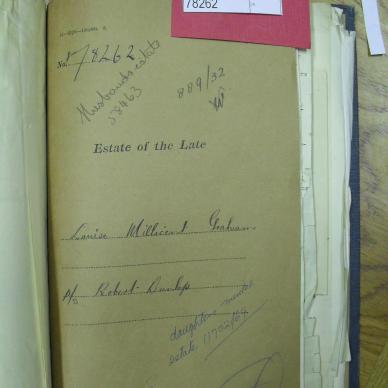 78262
No. 78262
Husbands estate
58463
889/32
Estate of the Late
Louise Millicent Graham
Robert Dunlop
daughters
estate 11702/64